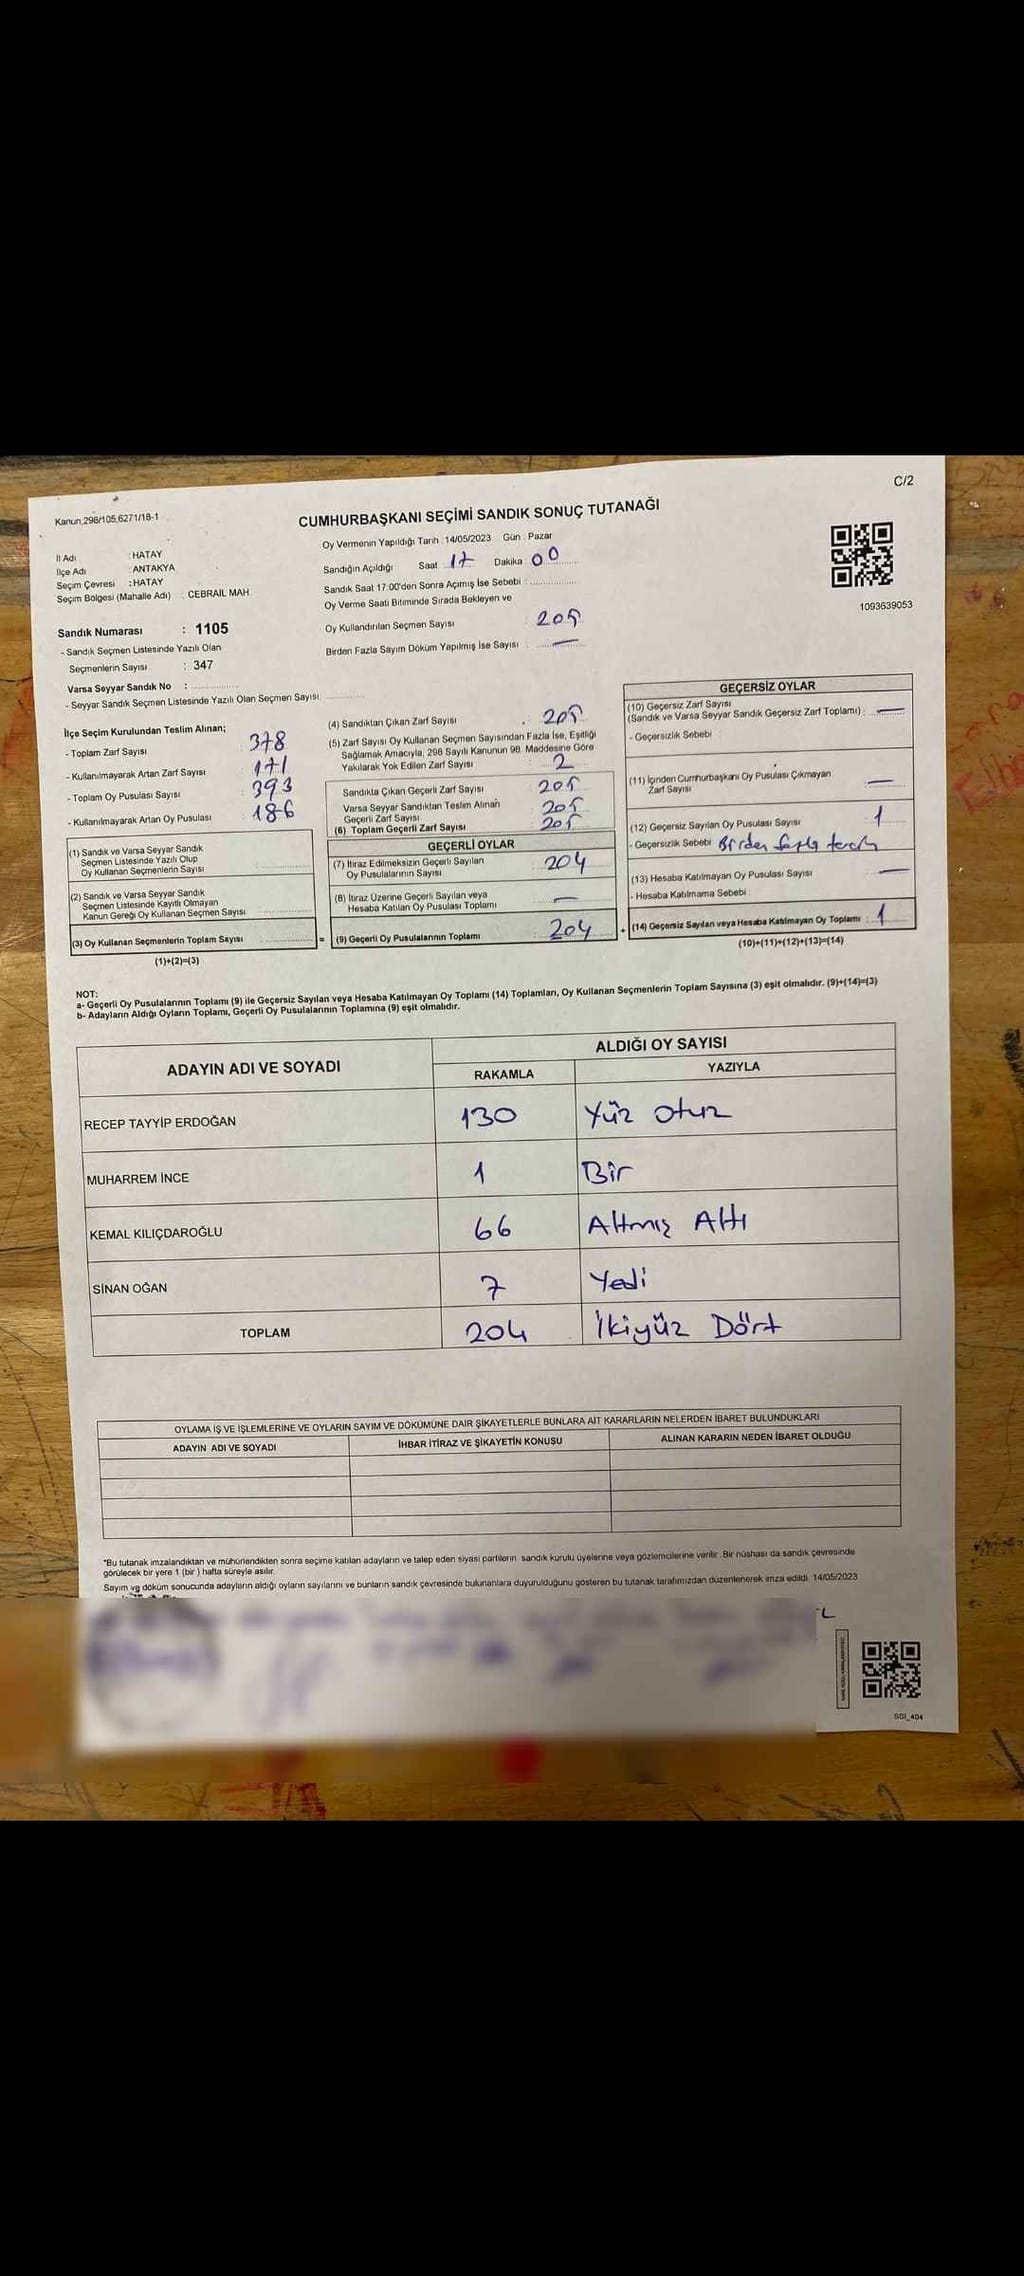 C/2
Kanun,298/105,6271/18-1
CUMHURBAŞKANI SEÇİMİ SANDIK SONUÇ TUTANAĞI
İl Adı : HATAY
İlçe Adı : ANTAKYA
Seçim Çevresi : HATAY
Seçim Bölgesi (Mahalle Adı) : CEBRAİL MAH.
Oy Vermenin Yapıldığı Tarih : 14/05/2023 Gün : Pazar
Sandığın Açıldığı Saat 17 Dakika 00
Sandık Saat 17:00'den Sonra Açımış İse Sebebi :
Oy Verme Saati Bitiminde Sırada Bekleyen ve
Oy Kullandırılan Seçmen Sayısı : 205
Birden Fazla Sayım Döküm Yapılmış İse Sayısı : —
1093639053
Sandık Numarası : 1105
- Sandık Seçmen Listesinde Yazılı Olan
Seçmenlerin Sayısı : 347
Varsa Seyyar Sandık No :
- Seyyar Sandık Seçmen Listesinde Yazılı Olan Seçmen Sayısı:
İlçe Seçim Kurulundan Teslim Alınan;
- Toplam Zarf Sayısı : 378
- Kullanılmayarak Artan Zarf Sayısı : 171
- Toplam Oy Pusulası Sayısı : 393
- Kullanılmayarak Artan Oy Pusulası : 186
(1) Sandık ve Varsa Seyyar Sandık
Seçmen Listesinde Yazılı Olup
Oy Kullanan Seçmenlerin Sayısı :
(2) Sandık ve Varsa Seyyar Sandık
Seçmen Listesinde Kayıtlı Olmayan
Kanun Gereği Oy Kullanan Seçmen Sayısı :
(3) Oy Kullanan Seçmenlerin Toplam Sayısı :
(1)+(2)=(3)
(4) Sandıktan Çıkan Zarf Sayısı : 205
(5) Zarf Sayısı Oy Kullanan Seçmen Sayısından Fazla İse, Eşitliği
Sağlamak Amacıyla, 298 Sayılı Kanunun 98. Maddesine Göre
Yakılarak Yok Edilen Zarf Sayısı : 2
Sandıkta Çıkan Geçerli Zarf Sayısı : 205
Varsa Seyyar Sandıktan Teslim Alınan
Geçerli Zarf Sayısı : 205
(6) Toplam Geçerli Zarf Sayısı : 205
=
GEÇERLİ OYLAR
(7) İtiraz Edilmeksizin Geçerli Sayılan
Oy Pusulalarının Sayısı : 204
(8) İtiraz Üzerine Geçerli Sayılan veya
Hesaba Katılan Oy Pusulası Toplamı : —
(9) Geçerli Oy Pusulalarının Toplamı : 204
+
GEÇERSİZ OYLAR
(10) Geçersiz Zarf Sayısı
(Sandık ve Varsa Seyyar Sandık Geçersiz Zarf Toplamı) : —
- Geçersizlik Sebebi :
(11) İçinden Cumhurbaşkanı Oy Pusulası Çıkmayan
Zarf Sayısı : —
(12) Geçersiz Sayılan Oy Pusulası Sayısı : 1
- Geçersizlik Sebebi : Birden fazla tercih
(13) Hesaba Katılmayan Oy Pusulası Sayısı : —
- Hesaba Katılmama Sebebi :
(14) Geçersiz Sayılan veya Hesaba Katılmayan Oy Toplamı : 1
(10)+(11)+(12)+(13)=(14)
NOT:
a- Geçerli Oy Pusulalarının Toplamı (9) ile Geçersiz Sayılan veya Hesaba Katılmayan Oy Toplamı (14) Toplamları, Oy Kullanan Seçmenlerin Toplam Sayısına (3) eşit olmalıdır. (9)+(14)=(3)
b- Adayların Aldığı Oyların Toplamı, Geçerli Oy Pusulalarının Toplamına (9) eşit olmalıdır.
ADAYIN ADI VE SOYADI ALDIĞI OY SAYISI
RAKAMLA YAZIYLA
RECEP TAYYİP ERDOĞAN 130 Yüz otuz
MUHARREM İNCE 1 Bir
KEMAL KILIÇDAROĞLU 66 Altmış Altı
SİNAN OĞAN 7 Yedi
TOPLAM 204 İkiyüz Dört
OYLAMA İŞ VE İŞLEMLERİNE VE OYLARIN SAYIM VE DÖKÜMÜNE DAİR ŞİKAYETLERLE BUNLARA AİT KARARLARIN NELERDEN İBARET BULUNDUKLARI
ADAYIN ADI VE SOYADI İHBAR İTİRAZ VE ŞİKAYETİN KONUSU ALINAN KARARIN NEDEN İBARET OLDUĞU
*Bu tutanak imzalandıktan ve mühürlendikten sonra seçime katılan adayların ve talep eden siyasi partilerin sandık kurulu üyelerine veya gözlemcilerine verilir. Bir nüshası da sandık çevresinde
görülecek bir yere 1 (bir) hafta süreyle asılır.
Sayım ve döküm sonucunda adayların aldığı oyların sayılarını ve bunların sandık çevresinde bulunanlara duyurulduğunu gösteren bu tutanak tarafımızdan düzenlenerek imza edildi. 14/05/2023
SSI_404